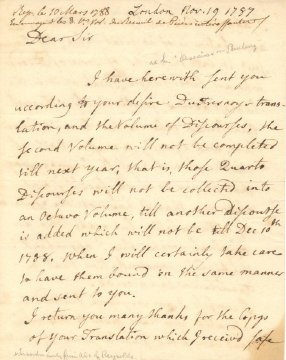 Rep. le 10 Mars 1788 London Nov. 19 1787
Dear Sir
I have herewith sent you
according to your desire, Dufresnoy's trans-
lation, and the Volume of Discourses, the
second Volume will not be completed
till next year, that is, those Quarto
Discourses will not be collected into
an Octavo Volume, till another Discourse
is added which will not be till Dec 10th
1788, when I will certainly take care
to have them bound in the same manner
and sent to you.
I return you many thanks for the Copys
of your Translation which I received safe